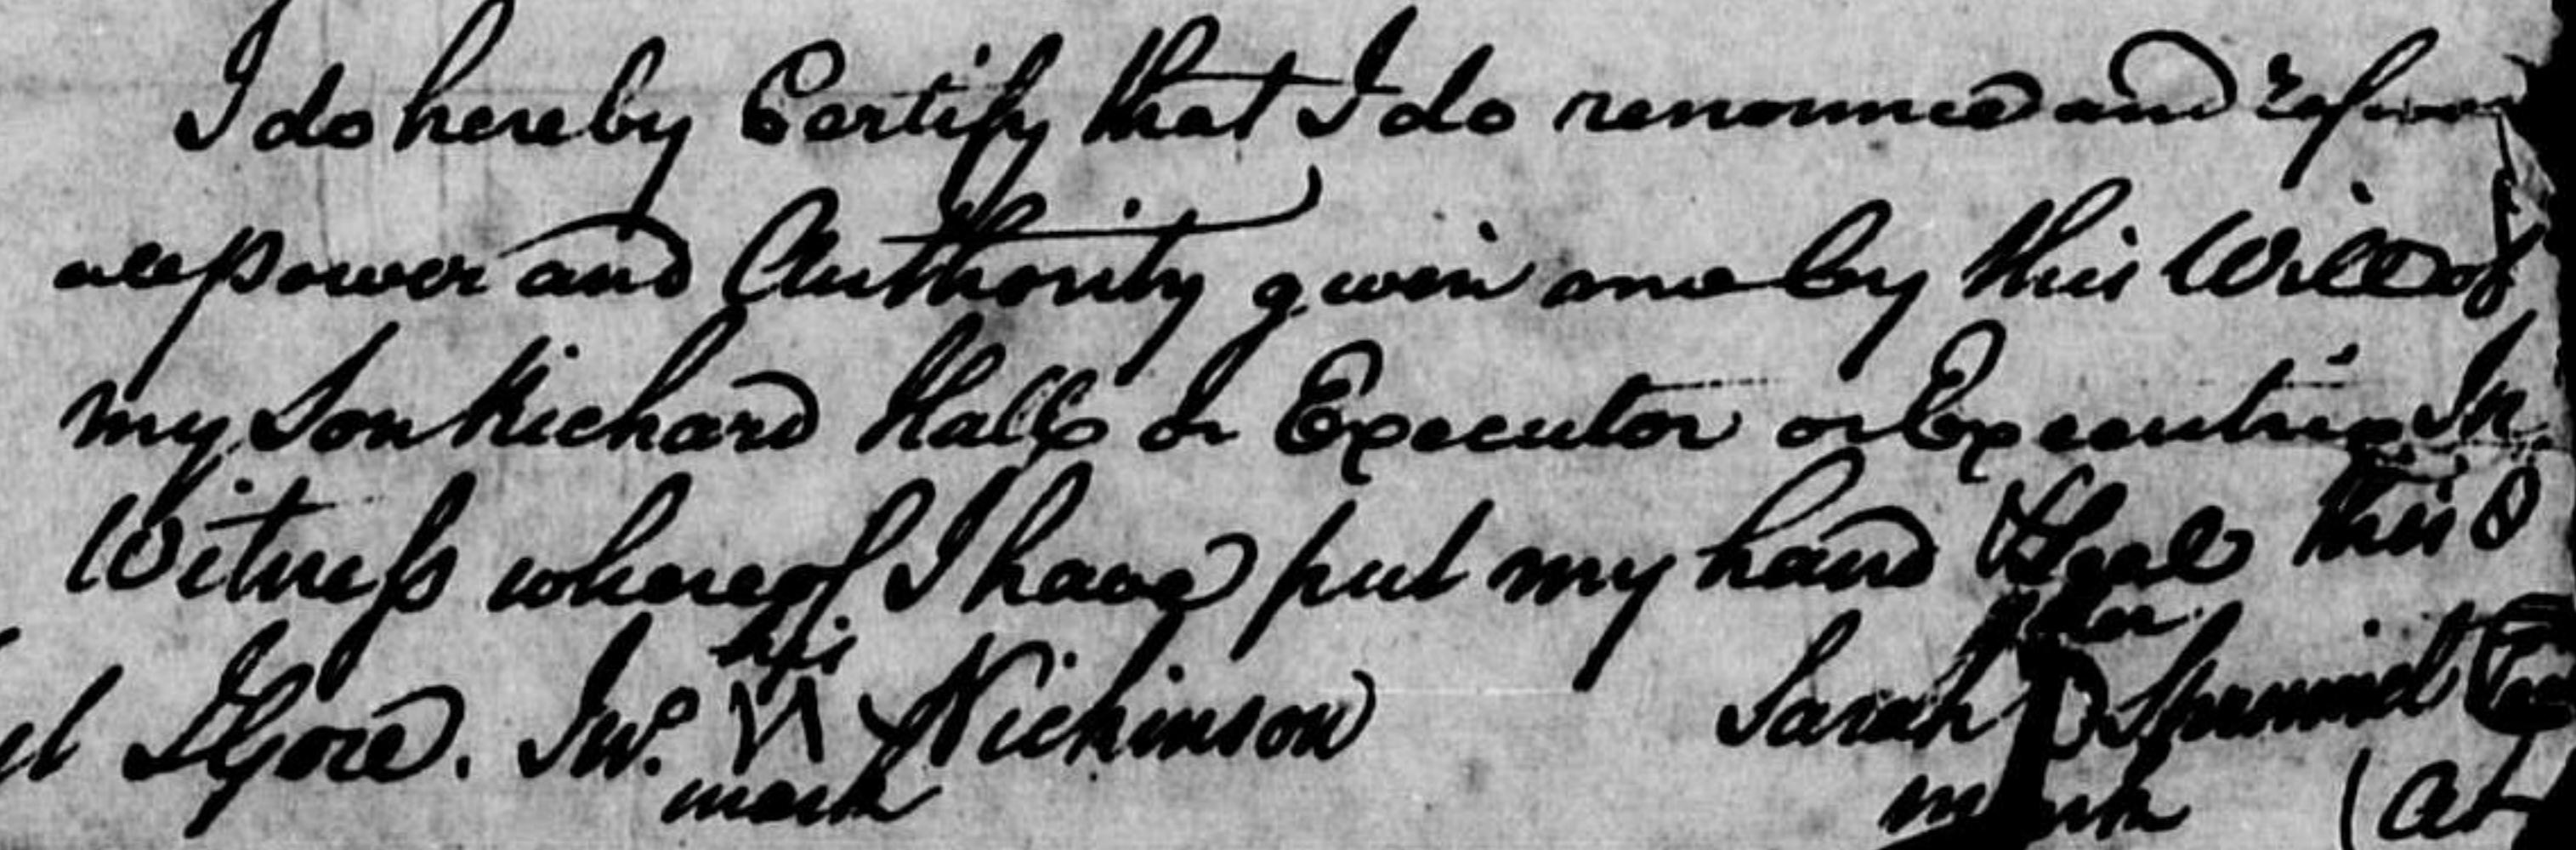 I do hereby Certify that I do renounce and
all power and Authority given me by this Will of
my Son Richard Hall as Executor or Executrix In
Witness whereof I have put my hand & Seal this 8
his her
Jno. N Nickinson Sarah
mark mark